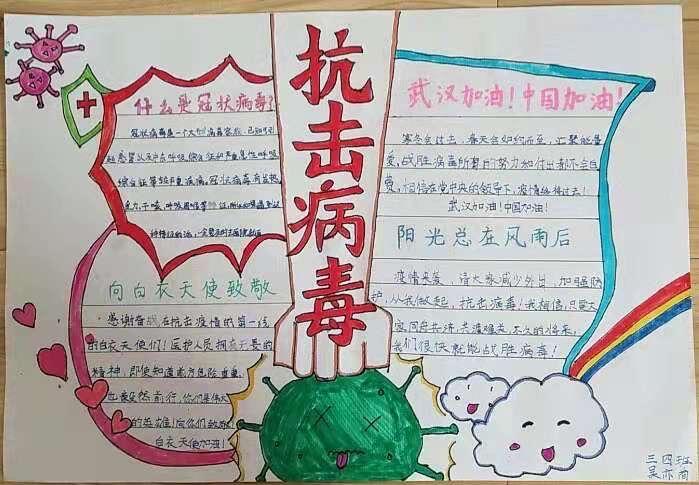 抗击病毒
什么是冠状病毒?
冠状病毒是一个大型病毒家族,已知可引
起感冒以及中东呼吸综合征和严重急性呼吸
综合征等较严重疾病。冠状病毒有发热、
乏力、干咳、呼吸困难等
向白衣天使致敬
感谢奋战在抗击疫情的第一线
的白衣天使们!医护人员拥有无畏的
精神,即使知道前方危险重重,
也毅然前行,你们是伟大
的英雄!向你们致敬!
白衣天使加油!
武汉加油!中国加油!
寒冬会过去,春天会如约而至,汇聚能量
爱,战胜病毒所有的努力和付出都不会白
费,相信在党中央的领导下,疫情终将过去!
武汉加油!中国加油!
阳光总在风雨后
疫情来袭,请大家减少外出,加强防
护,从我做起,抗击病毒!我相信,只要大
家同舟共济,共渡难关,不久的将来,
我们很快就能战胜病毒!
三四班
吴亦